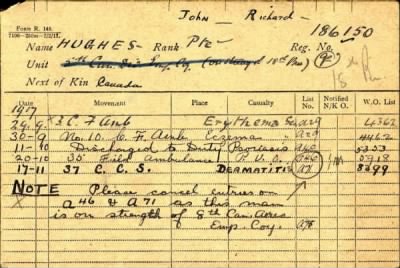 John - Richard -
Form R. 149.
186150
Name HUGHES - Rank Pte - Reg. No.
Unit
Next of Kin Canada
Date Movement Place Casualty List No. Notified N/K.O. W.O. List
1917
29-9 3 C. F. Amb Erythema 4362
30-9 No. 10. C. F. Amb Eczema " A29 4462
11-10 Discharged to Duty Psoriasis A40 5353
20-10 35 Field Ambulance P.U.O. A46 5918
17-11 37 C. C. S. DERMATITIS A71 8299
NOTE Please cancel entries on
A46 & A71 as this man
is on strength of 8th Can. Area
Emp. Coy. A78